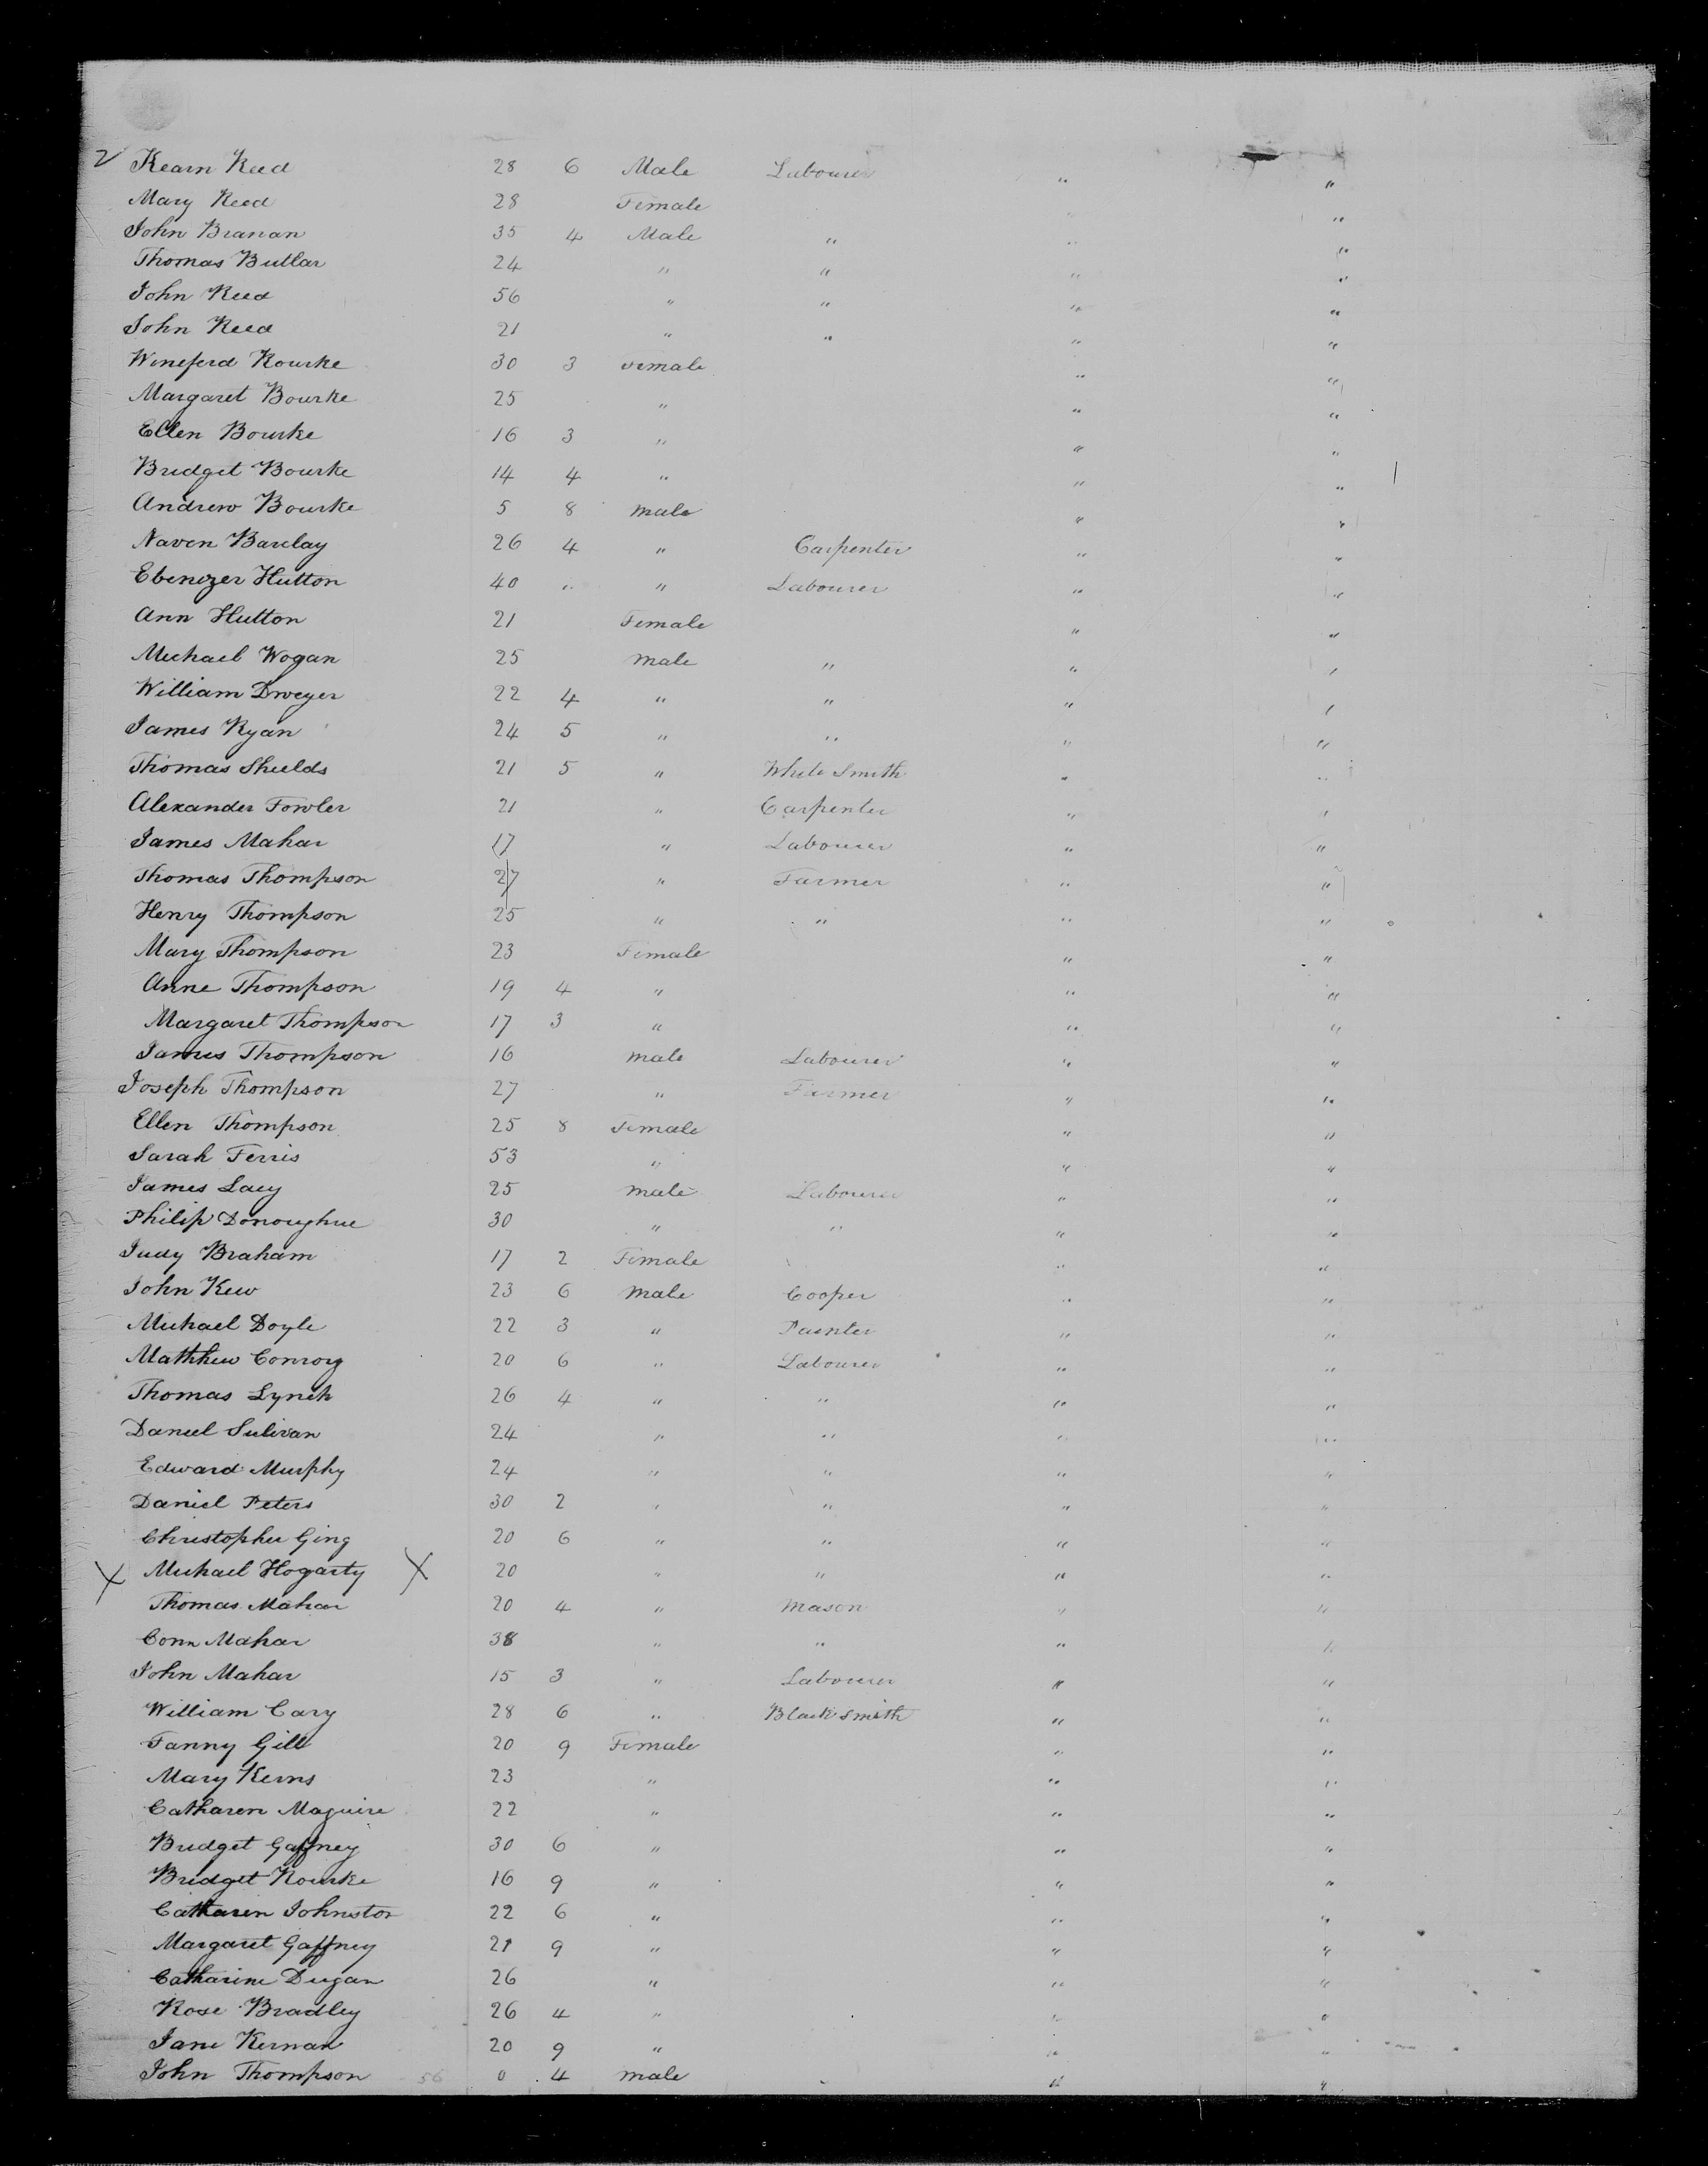 2 Kearn Reed 28 6 Male Labourer " "
Mary Reed 28 Female " "
John Branan 35 4 Male " " "
Thomas Butlar 24 " " " "
John Reed 56 " " " "
John Reed 21 " " " "
Wineferd Rourke 30 3 Female " "
Margaret Bourke 25 " " "
Ellen Bourke 16 3 " " "
Bridget Bourke 14 4 " " "
Andrew Bourke 5 8 male " "
Naven Barclay 26 4 " Carpenter " "
Ebenezer Hutton 40 " " Labourer " "
Ann Hutton 21 Female " "
Michael Wogan 25 male " " "
William Dweyer 22 4 " " " "
James Ryan 24 5 " " " "
Thomas Shields 21 5 " White Smith " "
Alexander Fowler 21 " Carpenter " "
James Mahar 17 " Labourer " "
Thomas Thompson 27 " Farmer " "
Henry Thompson 25 " " " "
Mary Thompson 23 Female " "
Anne Thompson 19 4 " " "
Margaret Thompson 17 3 " " "
James Thompson 16 male Labourer " "
Joseph Thompson 27 " Farmer " "
Ellen Thompson 25 8 Female " "
Sarah Ferris 53 " " "
James Lacy 25 male Labourer " "
Philip Donoughue 30 " " " "
Judy Braham 17 2 Female " "
John Kew 23 6 male Cooper " "
Michael Doyle 22 3 " Painter " "
Matthew Conroy 20 6 " Labourer " "
Thomas Lynch 26 4 " " " "
Daniel Sulivan 24 " " " "
Edward Murphy 24 " " " "
Daniel Peters 30 2 " " " "
Christopher Ging 20 6 " " " "
X Michael Hogarty X 20 " " " "
Thomas Mahar 20 4 " Mason " "
Conn Mahar 38 " " " "
John Mahar 15 3 " Labourer " "
William Cary 28 6 " Black Smith " "
Fanny Gill 20 9 Female " "
Mary Kerns 23 " " "
Catharen Maguire 22 " " "
Bridget Gaffney 30 6 " " "
Bridget Rourke 16 9 " " "
Catharin Johnston 22 6 " " "
Margaret Gaffney 21 9 " " "
Catharine Dugan 26 " " "
Rose Bradley 26 4 " " "
Jane Kernan 20 9 " " "
John Thompson 56 0 4 male " "